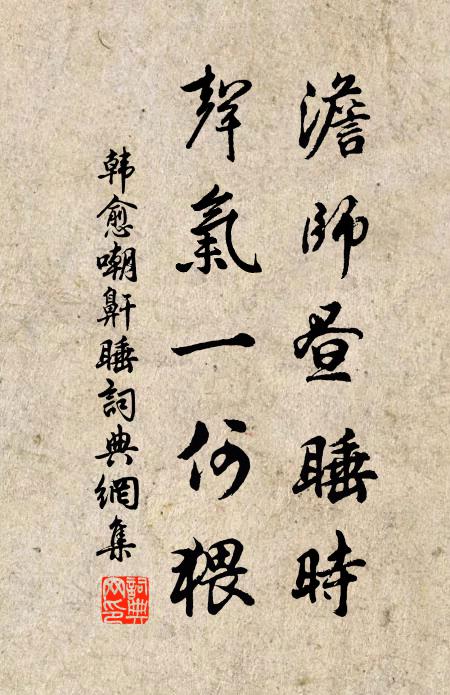 澹師晝睡時
聲氣一何猥
韩愈嘲鼾睡詞典網集